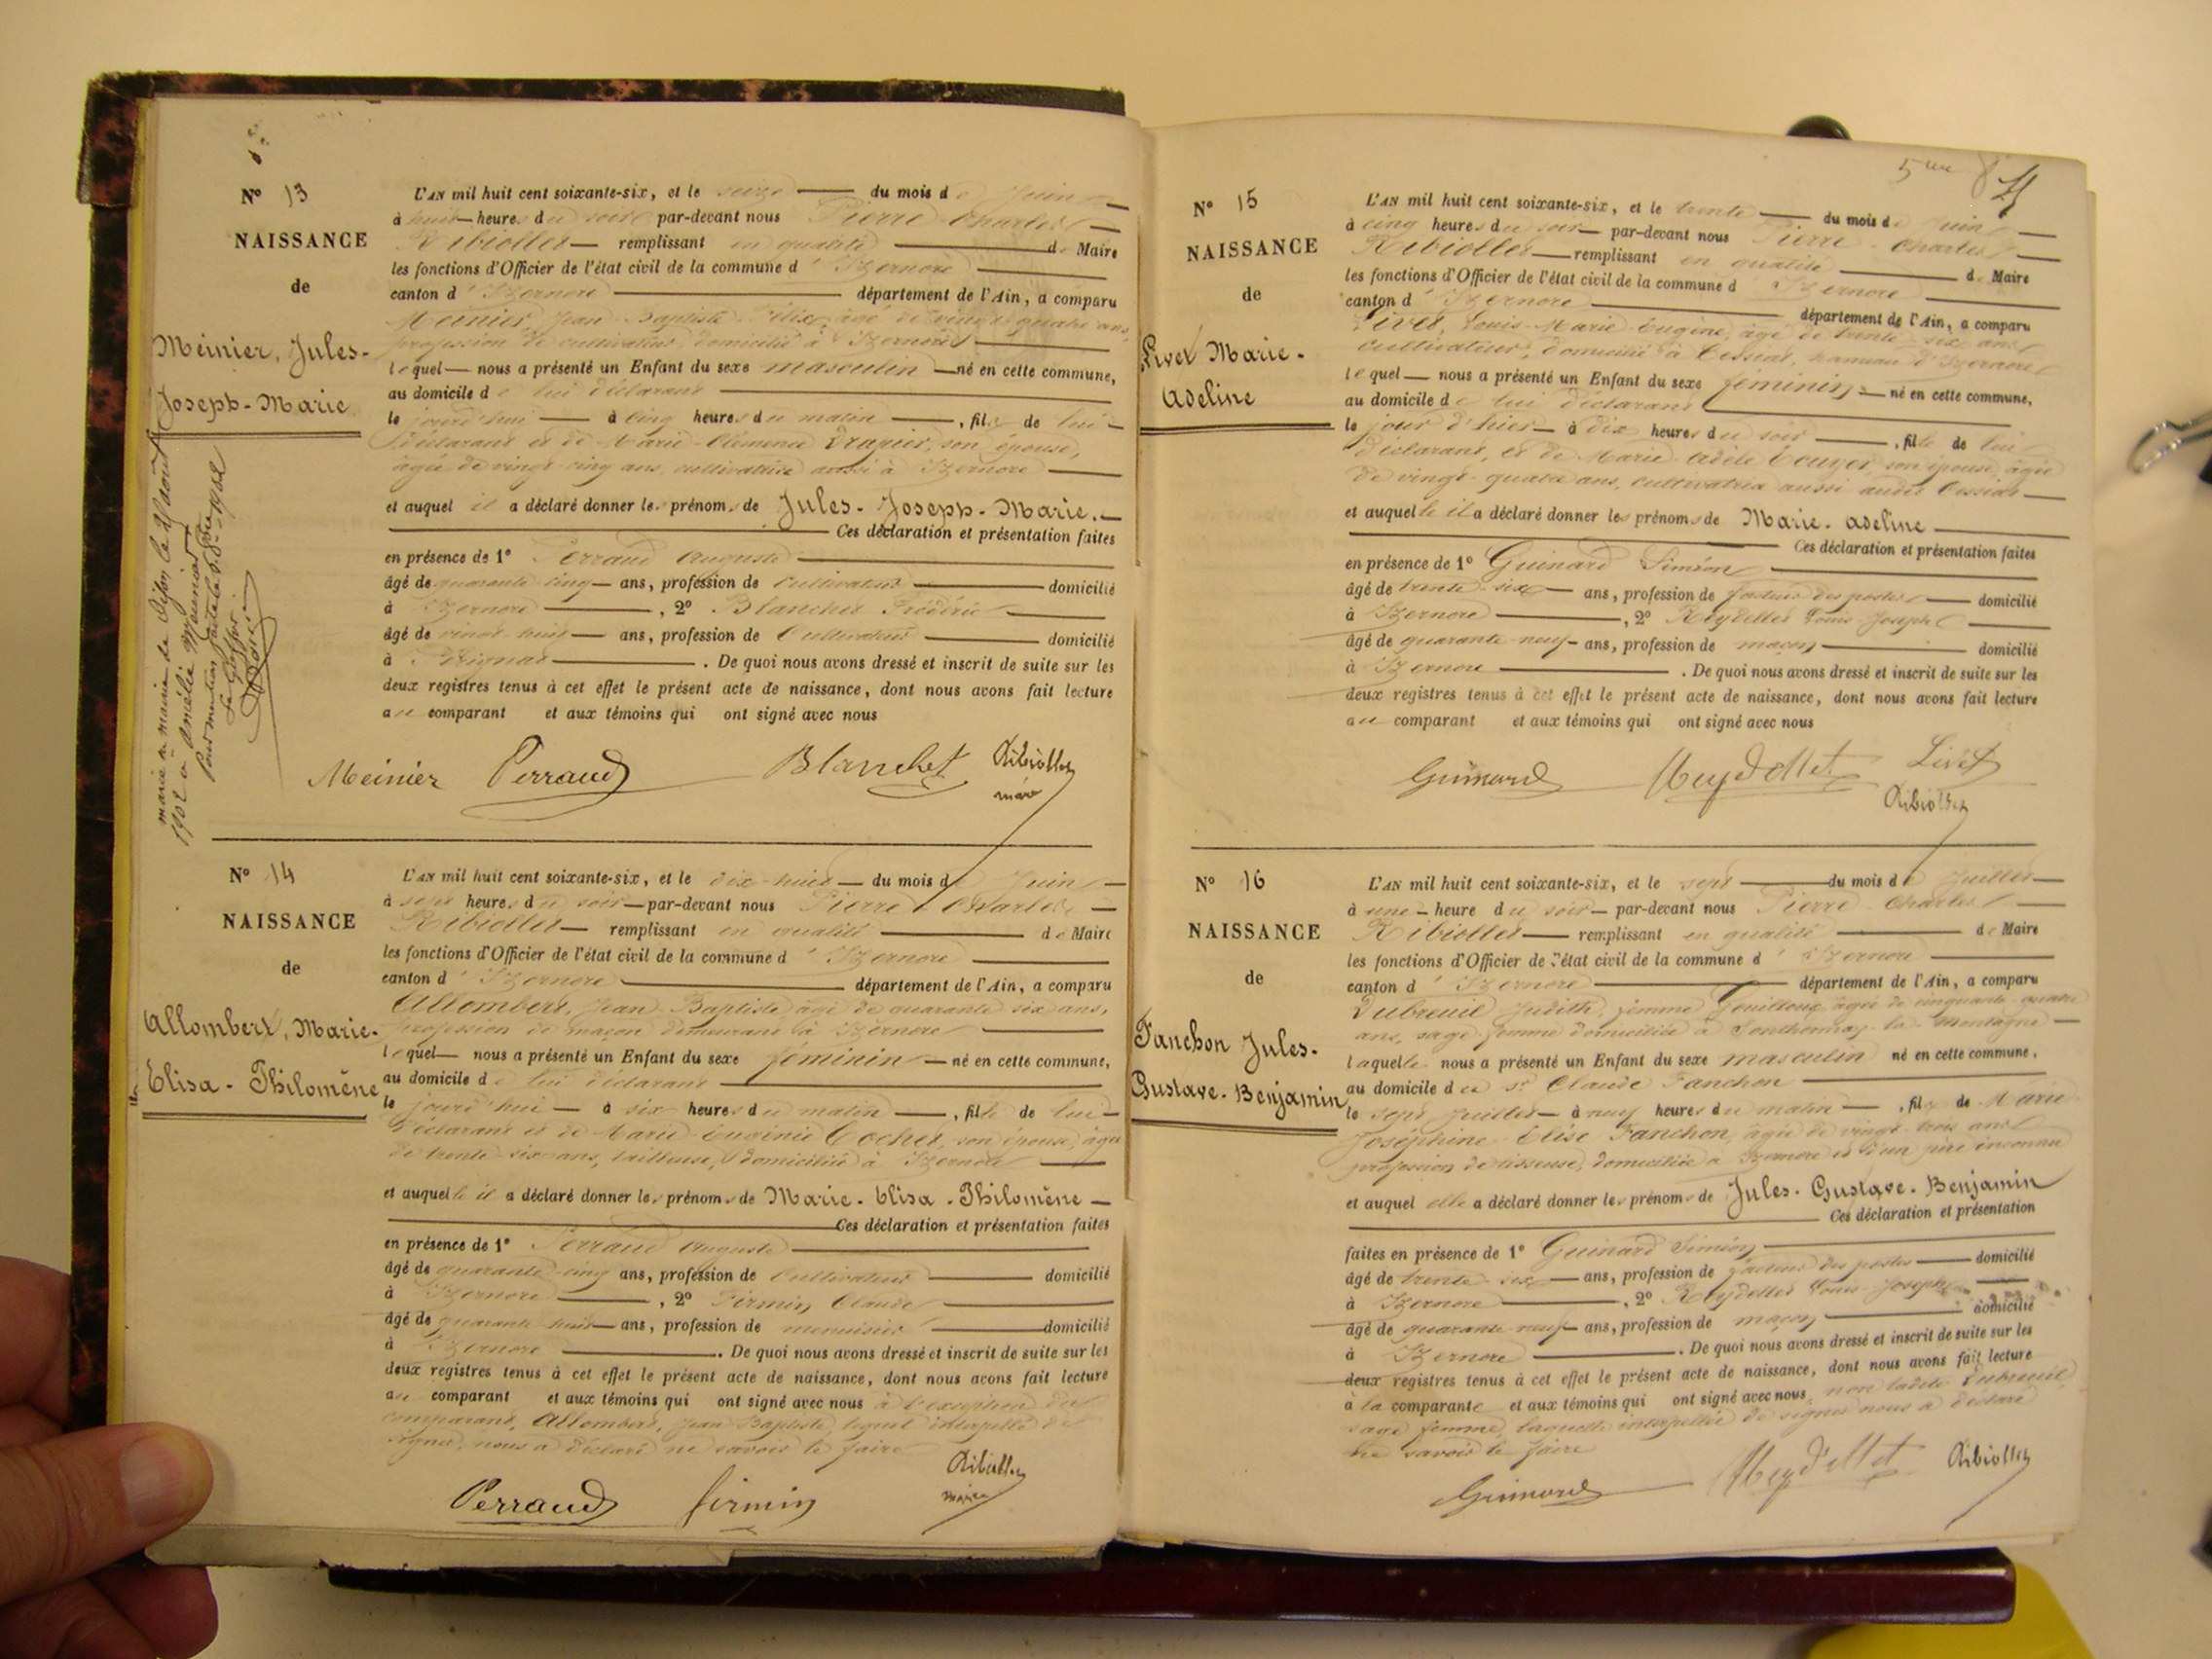 N° 13
NAISSANCE
de
Meinier, Jules-
Joseph-Marie
marié à mairie de Dijon le 21 août
1902 à Amélie
Pour mention
Le Greffier
L'AN mil huit cent soixante-six, et le seize du mois de Juin
à huit heures du soir par-devant nous Pierre Charles
Ribiollet remplissant en qualité de Maire
les fonctions d'Officier de l'état civil de la commune d'Izernore
canton d'Izernore département de l'Ain, a comparu
Meinier, Jean Baptiste Félix, âgé de vingt quatre ans,
profession de cultivateur, domicilié à Izernore
lequel nous a présenté un Enfant du sexe masculin né en cette commune,
au domicile de lui déclarant
le jourd'hui à cinq heures du matin, fils de lui
déclarant et de Marie Clémence Dragier, son épouse,
âgée de vingt cinq ans, cultivatrice aussi à Izernore
et auquel il a déclaré donner les prénoms de Jules-Joseph-Marie.
Ces déclaration et présentation faites
en présence de 1° Perraud Auguste
âgé de quarante cinq ans, profession de Cultivateur domicilié
à Izernore, 2° Blanchet Frédéric
âgé de vingt huit ans, profession de Cultivateur domicilié
à. De quoi nous avons dressé et inscrit de suite sur les
deux registres tenus à cet effet le présent acte de naissance, dont nous avons fait lecture
au comparant et aux témoins qui ont signé avec nous
Meinier Perraud Blanchet Ribiollet
maire
N° 14
NAISSANCE
de
Allombert, Marie-
Elisa-Philomène
L'AN mil huit cent soixante-six, et le dix-huit du mois de Juin
à sept heures du soir par-devant nous Pierre Charles
Ribiollet remplissant en qualité de Maire
les fonctions d'Officier de l'état civil de la commune d'Izernore
canton d'Izernore département de l'Ain, a comparu
Allombert, Jean Baptiste âgé de quarante six ans,
profession de maçon demeurant à Izernore
lequel nous a présenté un Enfant du sexe féminin né en cette commune,
au domicile de lui déclarant
le jourd'hui à six heures du matin, fille de lui
déclarant et de Marie Eugénie Cochet, son épouse, âgée
de trente six ans, tailleuse, domiciliée à Izernore
et auquel le il a déclaré donner les prénoms de Marie-Elisa-Philomène
Ces déclaration et présentation faites
en présence de 1° Perraud Auguste
âgé de quarante cinq ans, profession de Cultivateur domicilié
à Izernore, 2° Firmin Claude
âgé de quarante huit ans, profession de menuisier domicilié
à Izernore. De quoi nous avons dressé et inscrit de suite sur les
deux registres tenus à cet effet le présent acte de naissance, dont nous avons fait lecture
au comparant et aux témoins qui ont signé avec nous à l'exception du
comparant, Allombert, Jean Baptiste, lequel interpellé de
signer, nous a déclaré ne savoir le faire
Perraud Firmin Ribiollet
maire
5me
N° 15
NAISSANCE
de
Livet Marie-
Adeline
L'AN mil huit cent soixante-six, et le trente du mois de Juin
à cinq heures du soir par-devant nous Pierre Charles
Ribiollet remplissant en qualité de Maire
les fonctions d'Officier de l'état civil de la commune d'Izernore
canton d'Izernore département de l'Ain, a comparu
Livet, Louis-Marie Eugène, âgé de trente-six ans
cultivateur, domicilié à Cessiat, hameau d'Izernore
lequel nous a présenté un Enfant du sexe féminin né en cette commune,
au domicile de lui déclarant
le jour d'hier à dix heures du soir, fille de lui
déclarant, et de Marie Adèle son épouse, âgée
de vingt-quatre ans, cultivatrice aussi audit Cessiat
et auquel le il a déclaré donner les prénoms de Marie-Adeline
Ces déclaration et présentation faites
en présence de 1° Guinard Siméon
âgé de trente-six ans, profession de facteur des postes domicilié
à Izernore, 2° Reydellet Louis-Joseph
âgé de quarante-neuf ans, profession de maçon domicilié
à Izernore. De quoi nous avons dressé et inscrit de suite sur les
deux registres tenus à cet effet le présent acte de naissance, dont nous avons fait lecture
au comparant et aux témoins qui ont signé avec nous
Guinard Reydellet Livet
Ribiollet
N° 16
NAISSANCE
de
Fanchon Jules-
Gustave-Benjamin
L'AN mil huit cent soixante-six, et le sept du mois de Juillet
à une heure du soir par-devant nous Pierre Charles
Ribiollet remplissant en qualité de Maire
les fonctions d'Officier de l'état civil de la commune d'Izernore
canton d'Izernore département de l'Ain, a comparu
Dubreuil Judith, femme âgée de cinquante-quatre
ans, sage-femme domiciliée à Sonthonnax-la-Montagne
laquelle nous a présenté un Enfant du sexe masculin né en cette commune,
au domicile du sr Claude Fanchon
le sept Juillet à neuf heures du matin, fils de Marie
Joséphine Elise Fanchon, âgée de vingt-trois ans
profession de tisseuse, domiciliée à Izernore et d'un père inconnu
et auquel elle a déclaré donner les prénoms de Jules-Gustave-Benjamin
Ces déclaration et présentation
faites en présence de 1° Guinard Siméon
âgé de trente-six ans, profession de facteur des postes domicilié
à Izernore, 2° Reydellet Louis-Joseph
âgé de quarante-neuf ans, profession de maçon domicilié
à Izernore. De quoi nous avons dressé et inscrit de suite sur les
deux registres tenus à cet effet le présent acte de naissance, dont nous avons fait lecture
à la comparante et aux témoins qui ont signé avec nous, non ladite Dubreuil
sage femme, laquelle interpellée de signer nous a déclaré
ne savoir le faire
Guinard Reydellet Ribiollet